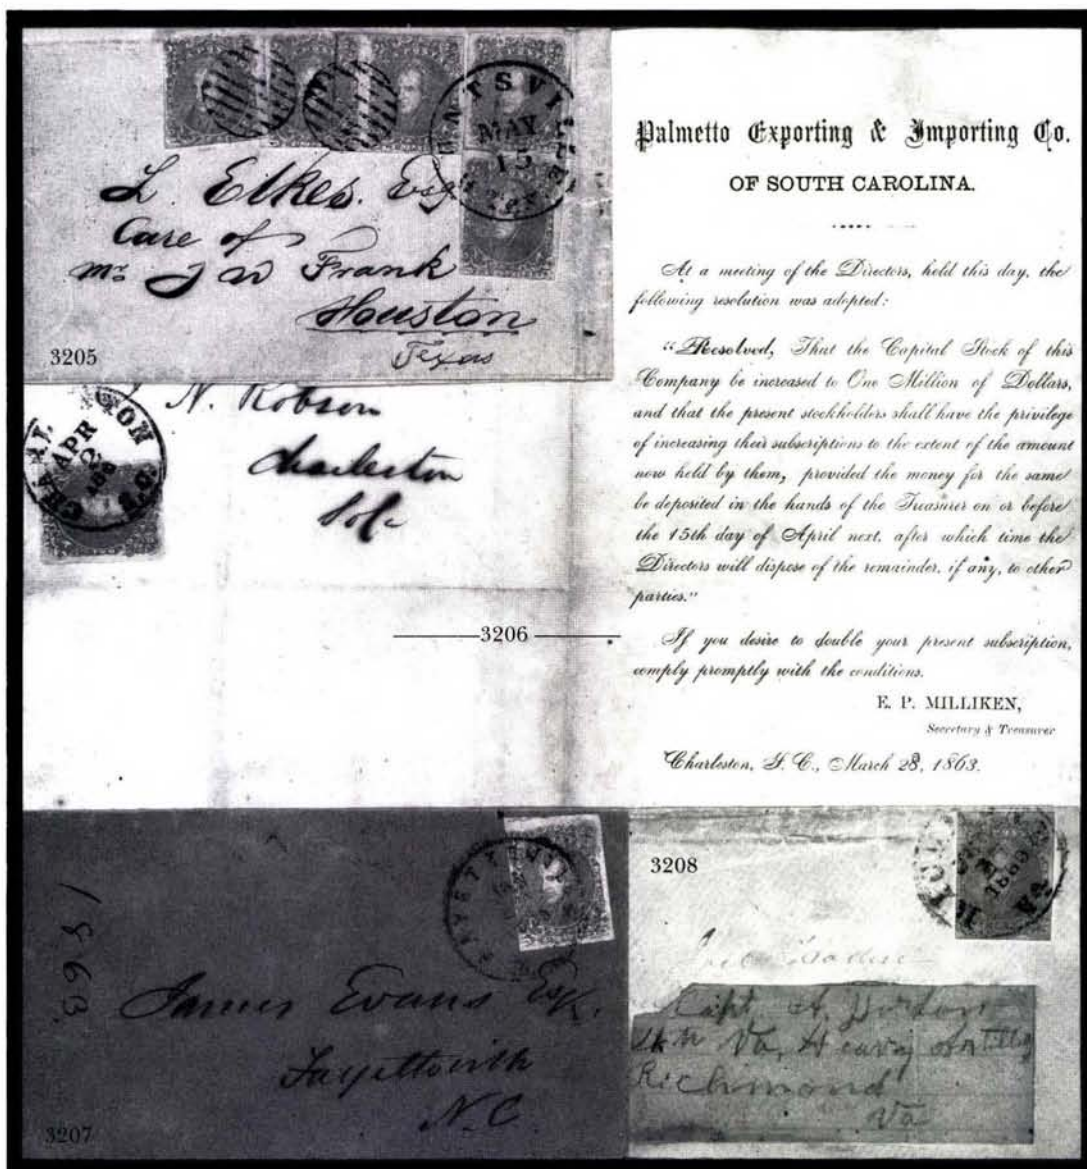 TSVILLE
MAY
15
L. Elkes. Esq
Care of
Mr J W Frank
Houston
Texas
3205
CHARLESTON
APR
2
N. Robson
Charleston
So Ca
3206
Palmetto Exporting & Importing Co.
OF SOUTH CAROLINA.
At a meeting of the Directors, held this day, the
following resolution was adopted:
"Resolved, That the Capital Stock of this
Company be increased to One Million of Dollars,
and that the present stockholders shall have the privilege
of increasing their subscriptions to the extent of the amount
now held by them, provided the money for the same
be deposited in the hands of the Treasurer on or before
the 15th day of April next, after which time the
Directors will dispose of the remainder, if any, to other
parties."
If you desire to double your present subscription,
comply promptly with the conditions.
E. P. MILLIKEN,
Secretary & Treasurer
Charleston, S. C., March 28, 1863.
1863
James Evans Esq.
Fayetteville
N.C
3207
3208
1863
VA
Capt. A.
Va, Heavy Artillery
Richmond
Va